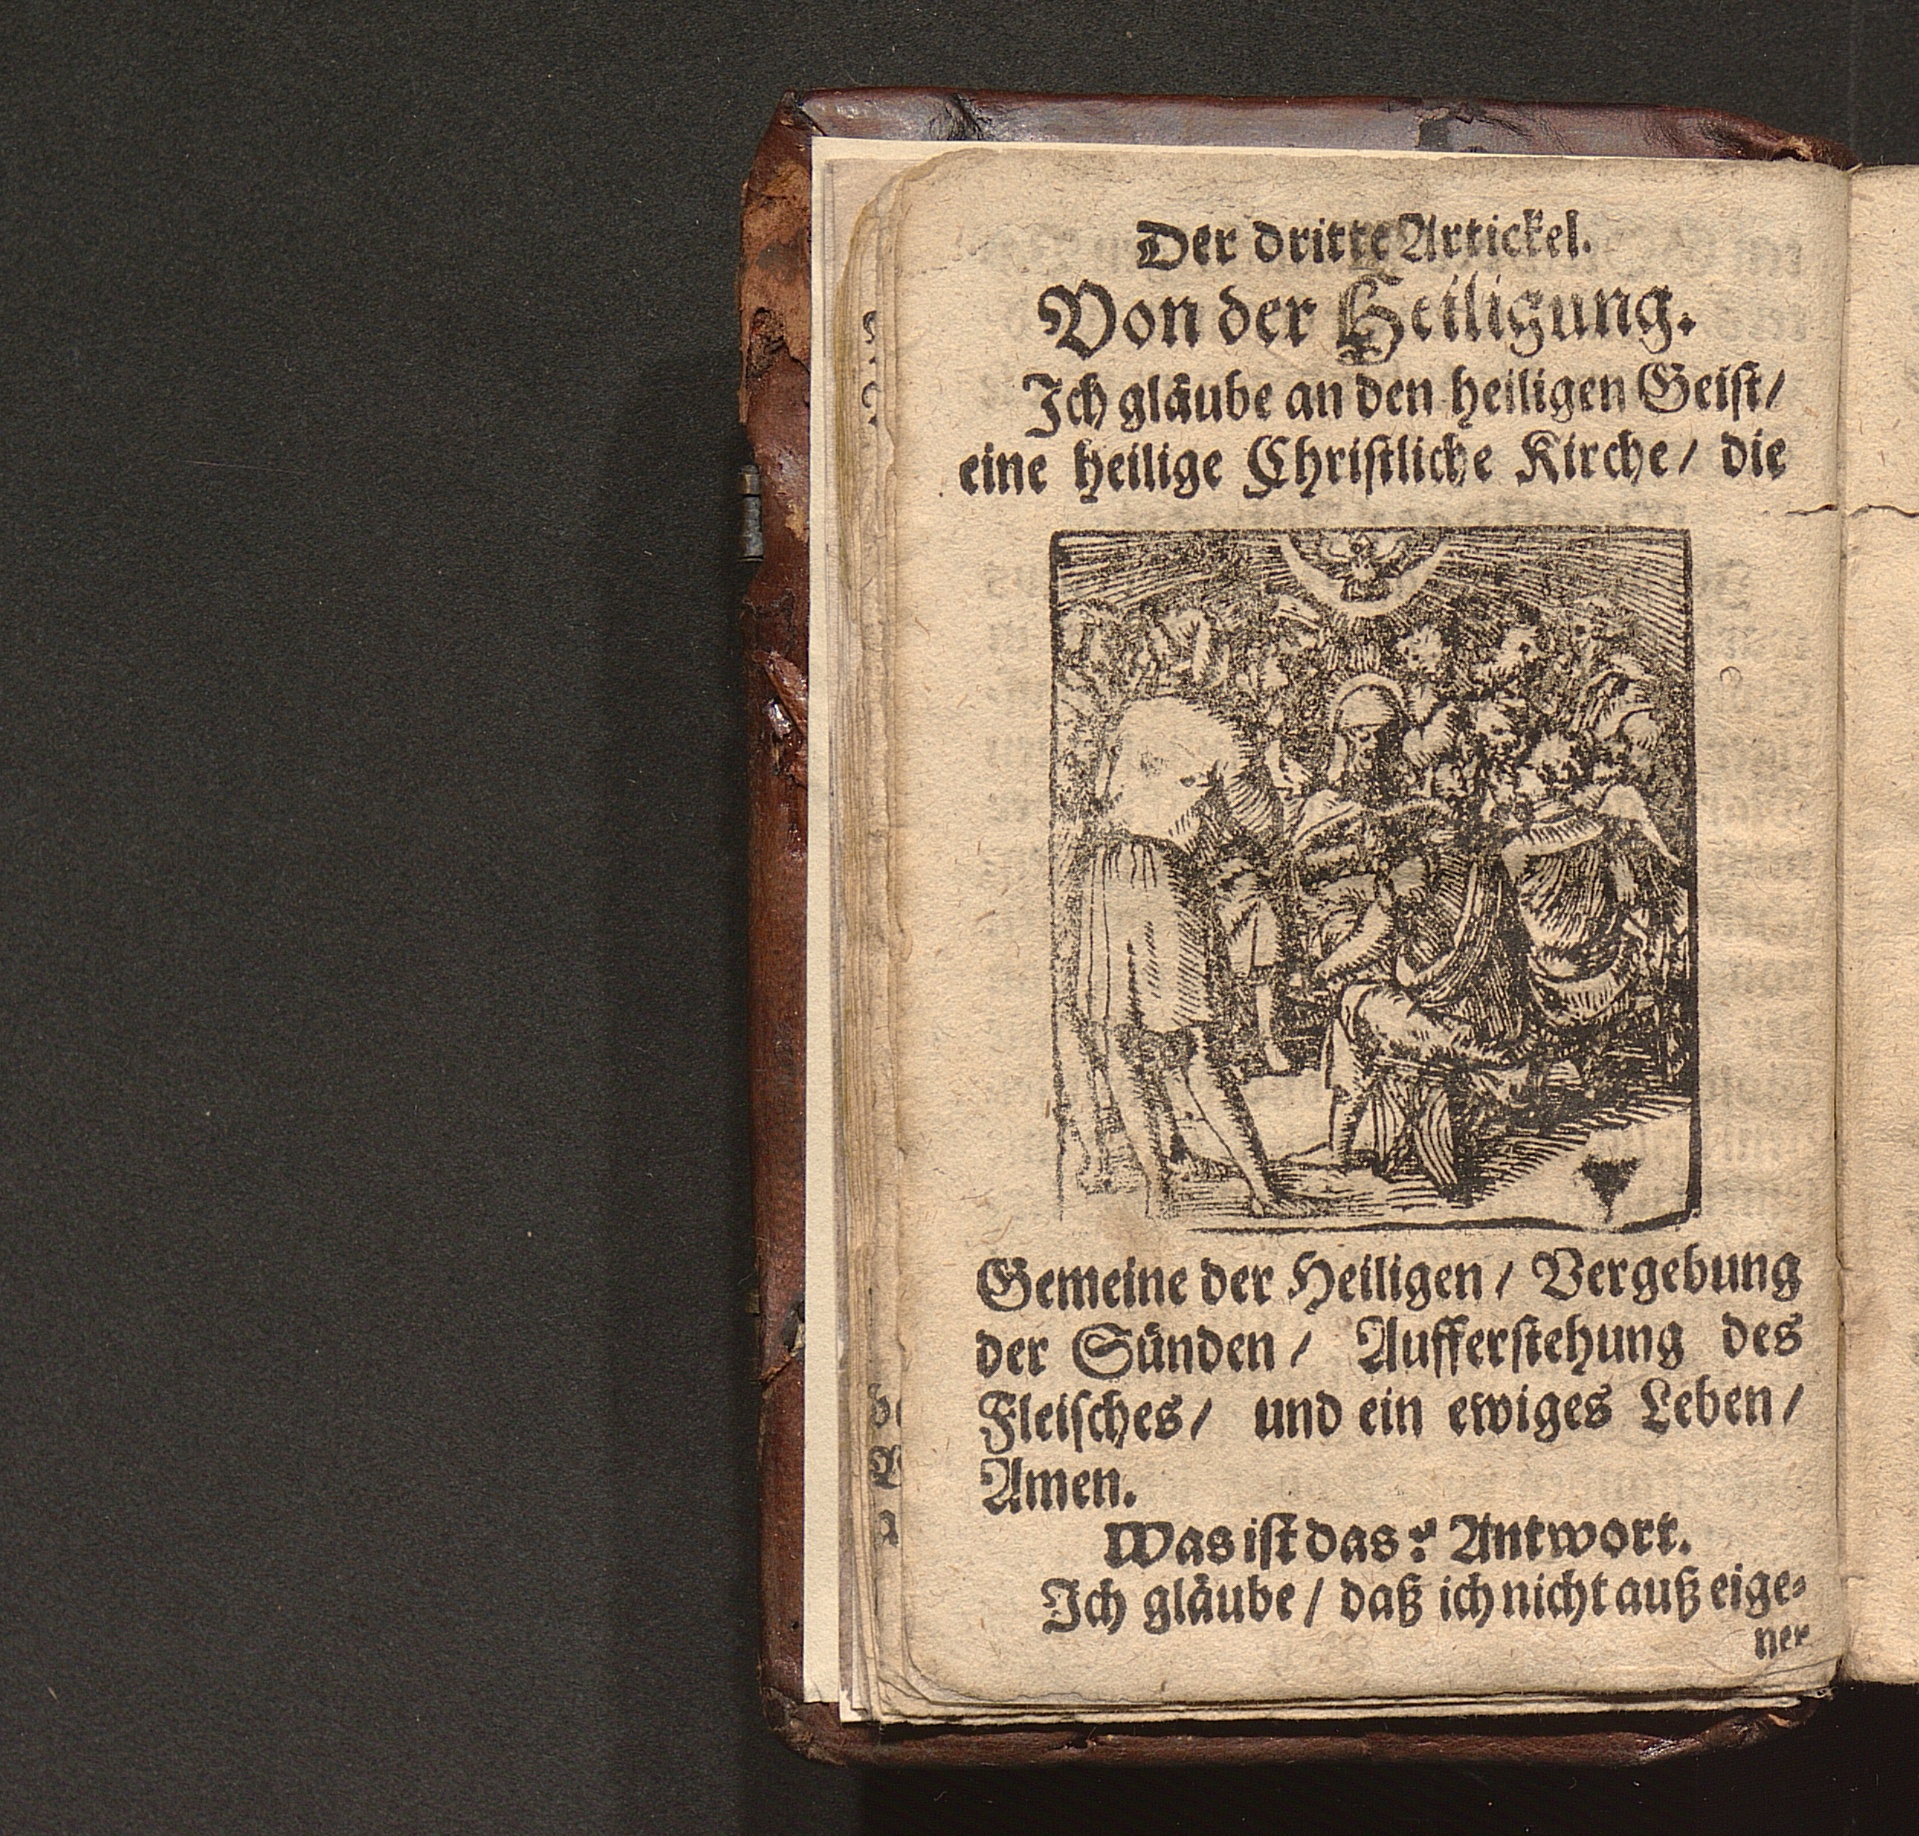 Der dritte Artickel.
Von der Heiligung.
Ich gläube an den heiligen Geist/
eine heilige Christliche Kirche/ die
Gemeine der Heiligen/ Vergebung
der Sünden/ Aufferstehung des
Fleisches/ und ein ewiges Leben/
Amen.
Was ist das? Antwort.
Ich gläube/ daß ich nicht auß eige-
ner